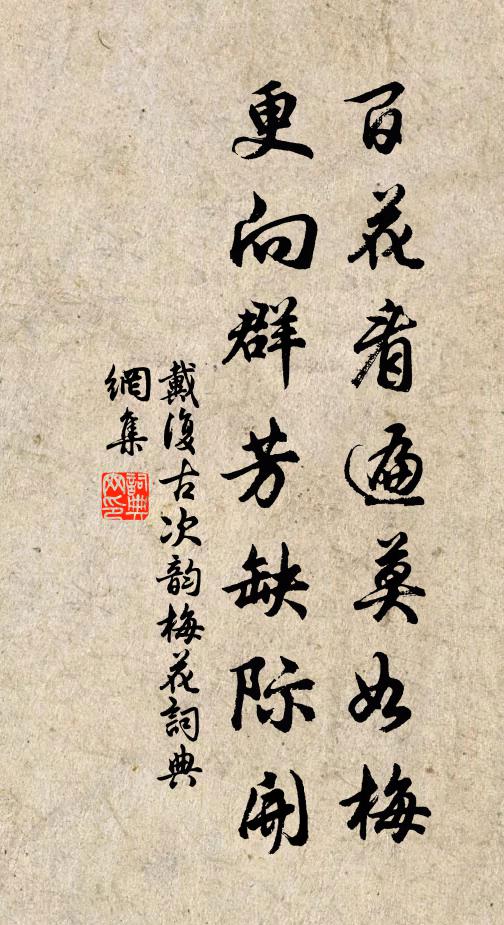 百花看遍莫如梅
更向群芳缺际開
戴復古次韵梅花詞典
網集
詞典
网印